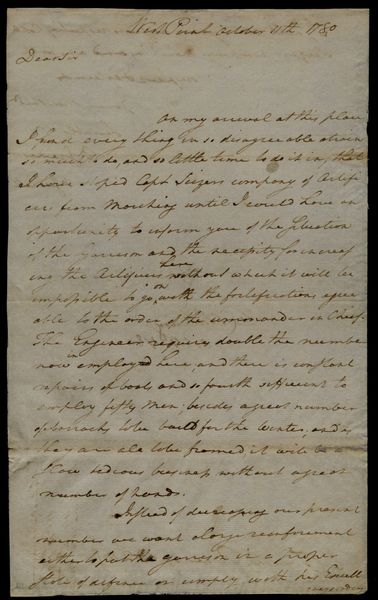 West Point October 11th 1780
Dear Sir
On my arrival at this place
I found every thing in so disagreeable a train
so much to do, and so little time to do it in, that
I have stoped Capt Seizers company of Artifi
cers from Marching until I could have an
oppertunity to inform you of the Situation
of the Garrison and the necissity for increas
ing the Artificers here without which it will be
impossible to go on with the fortifications agree
able to the order of the Commander in Chief.
The Engineer requires double the number
now employed in here, and there is constant
repairs of boats and so fourth sufficient to
employ fifty men. besides a great number
of barracks to be built for the winter, and as
they are all to be framed it will be a
slow tedious business without a great
number of hands.
Instead of decreasing our present
number we want a large reinforcement
either to put the garrison in a proper
State of defence or comply with his Excell